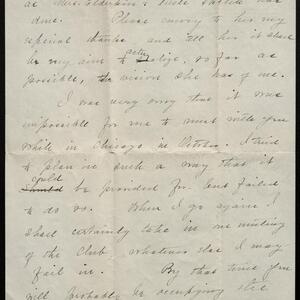 as Mrs. Elderkin's little was
done. Please convey to her my
especial thanks and tell her it shall
be my aim to actu-
alize, so far as
possible, the vision she has of me.
I was very sorry that it was
impossible for me to meet with you
while in Chicago in October. I tried
to plan in such a way that it
could
should be provided for but failed
to do so. When I go again I
shall certainly take in one meeting
of the Club whatever else I may
fail in. By that time you
will probably be occupying